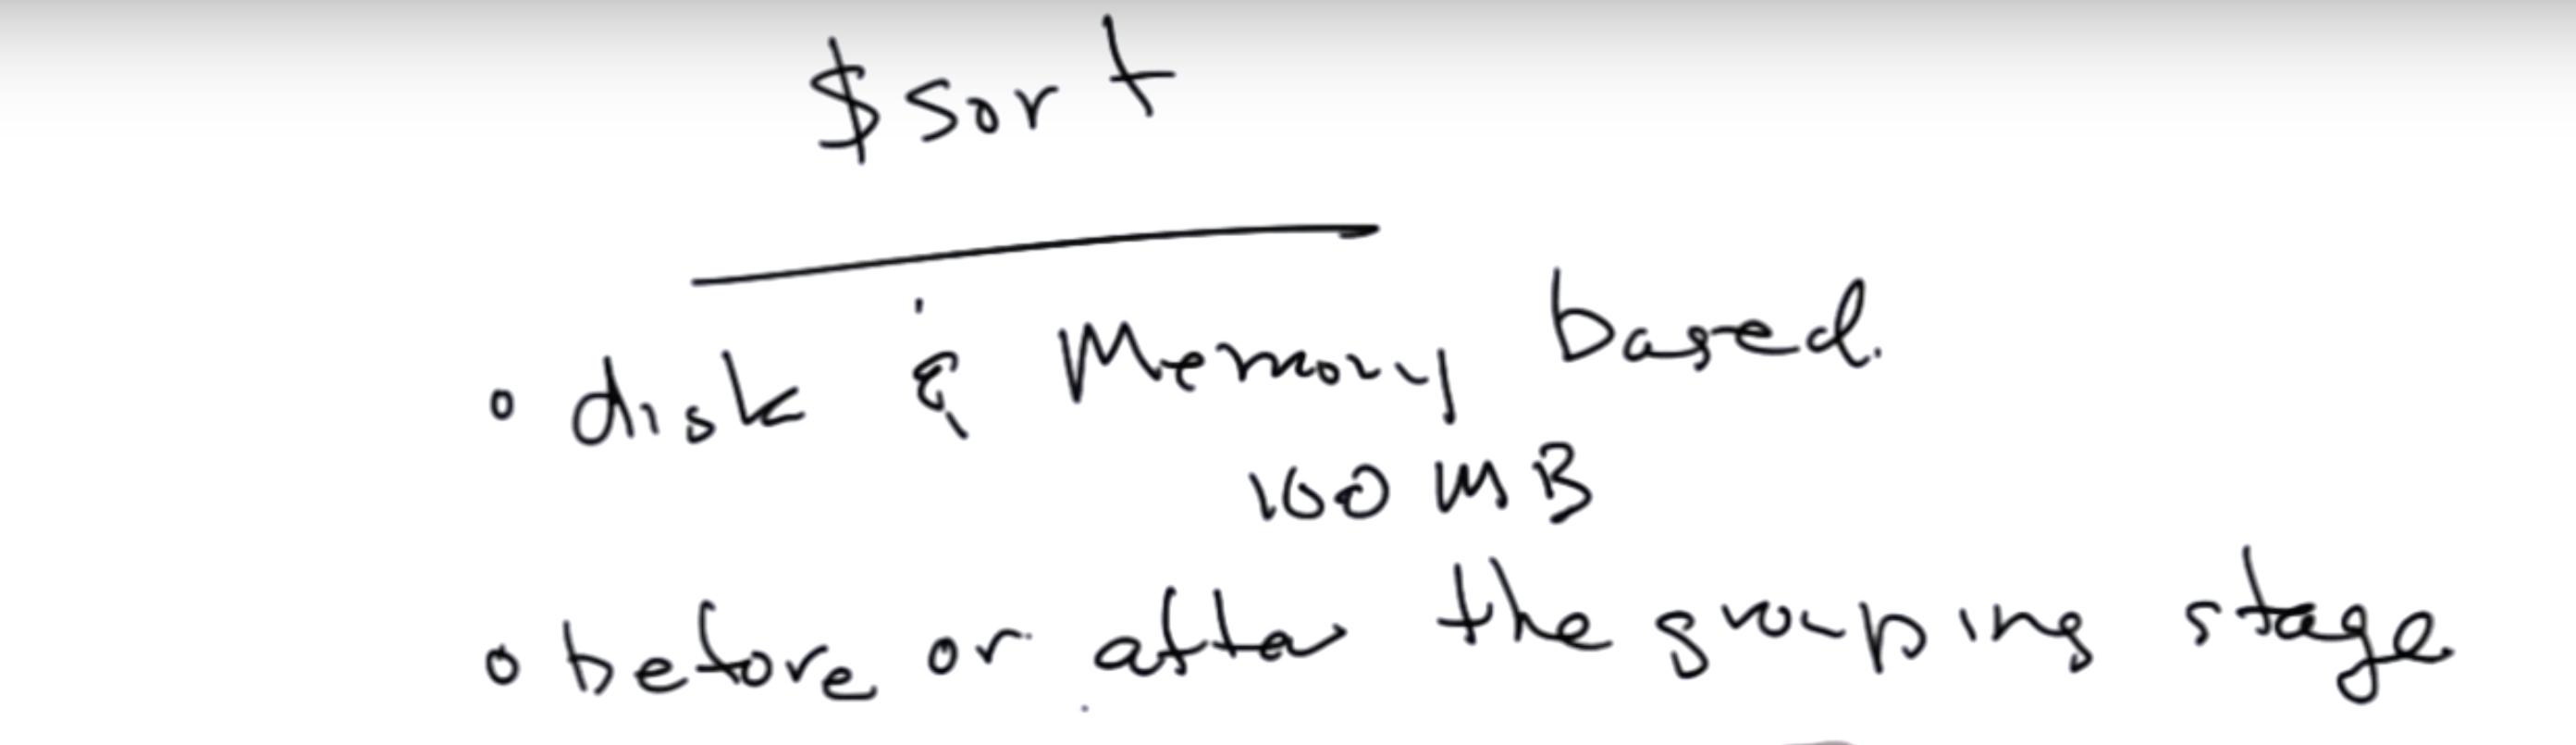 $sort
• disk & Memory based.
100 MB
• before or after the grouping stage